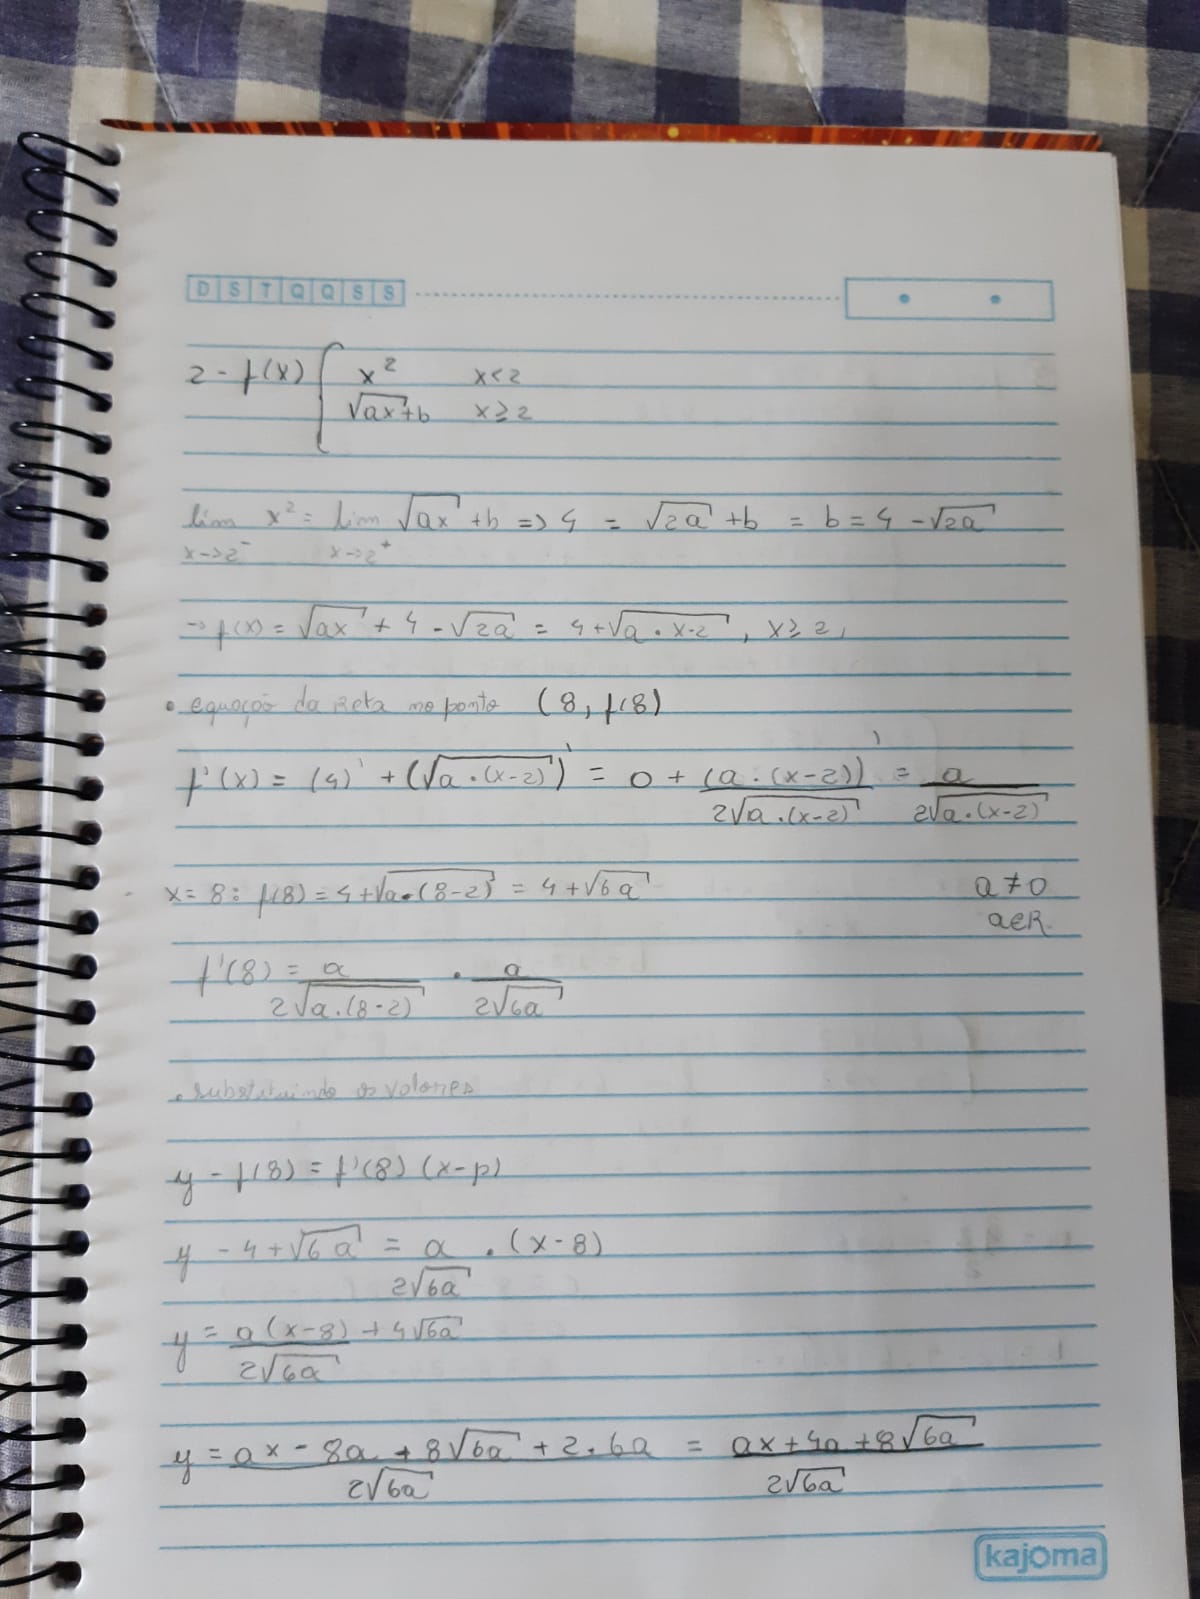 D S T Q Q S S
2 - f(x) { x² x<2
√ax+b x≥2
lim x² = lim √ax +b => 4 = √2a +b = b = 4 - √2a
x->2⁻ x->2⁺
-> f(x) = √ax + 4 - √2a = 4+√a · x-2 , x≥2,
• equação da reta no ponto (8, f(8)
f'(x) = (4)' + (√a·(x-2))' = 0 + (a·(x-2))' / 2√a·(x-2) = a / 2√a·(x-2)
x= 8: f(8) = 4+√a·(8-2) = 4+√6a a≠0
a∈R.
f'(8) = a / 2√a.(8-2) · a / 2√6a
. substituindo os valores
y - f(8) = f'(8) (x-p)
y - 4+√6a = a / 2√6a . (x-8)
y = a(x-8) / 2√6a + 4√6a
y = ax - 8a + 8√6a + 2.6a / 2√6a = ax+4a+8√6a / 2√6a
kajoma